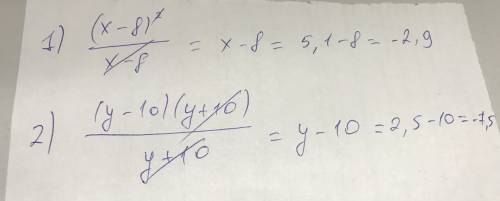 1) (x-8)² / x-8 = x-8 = 5,1-8 = -2,9
2) (y-10)(y+10) / y+10 = y-10 = 2,5-10=-7,5